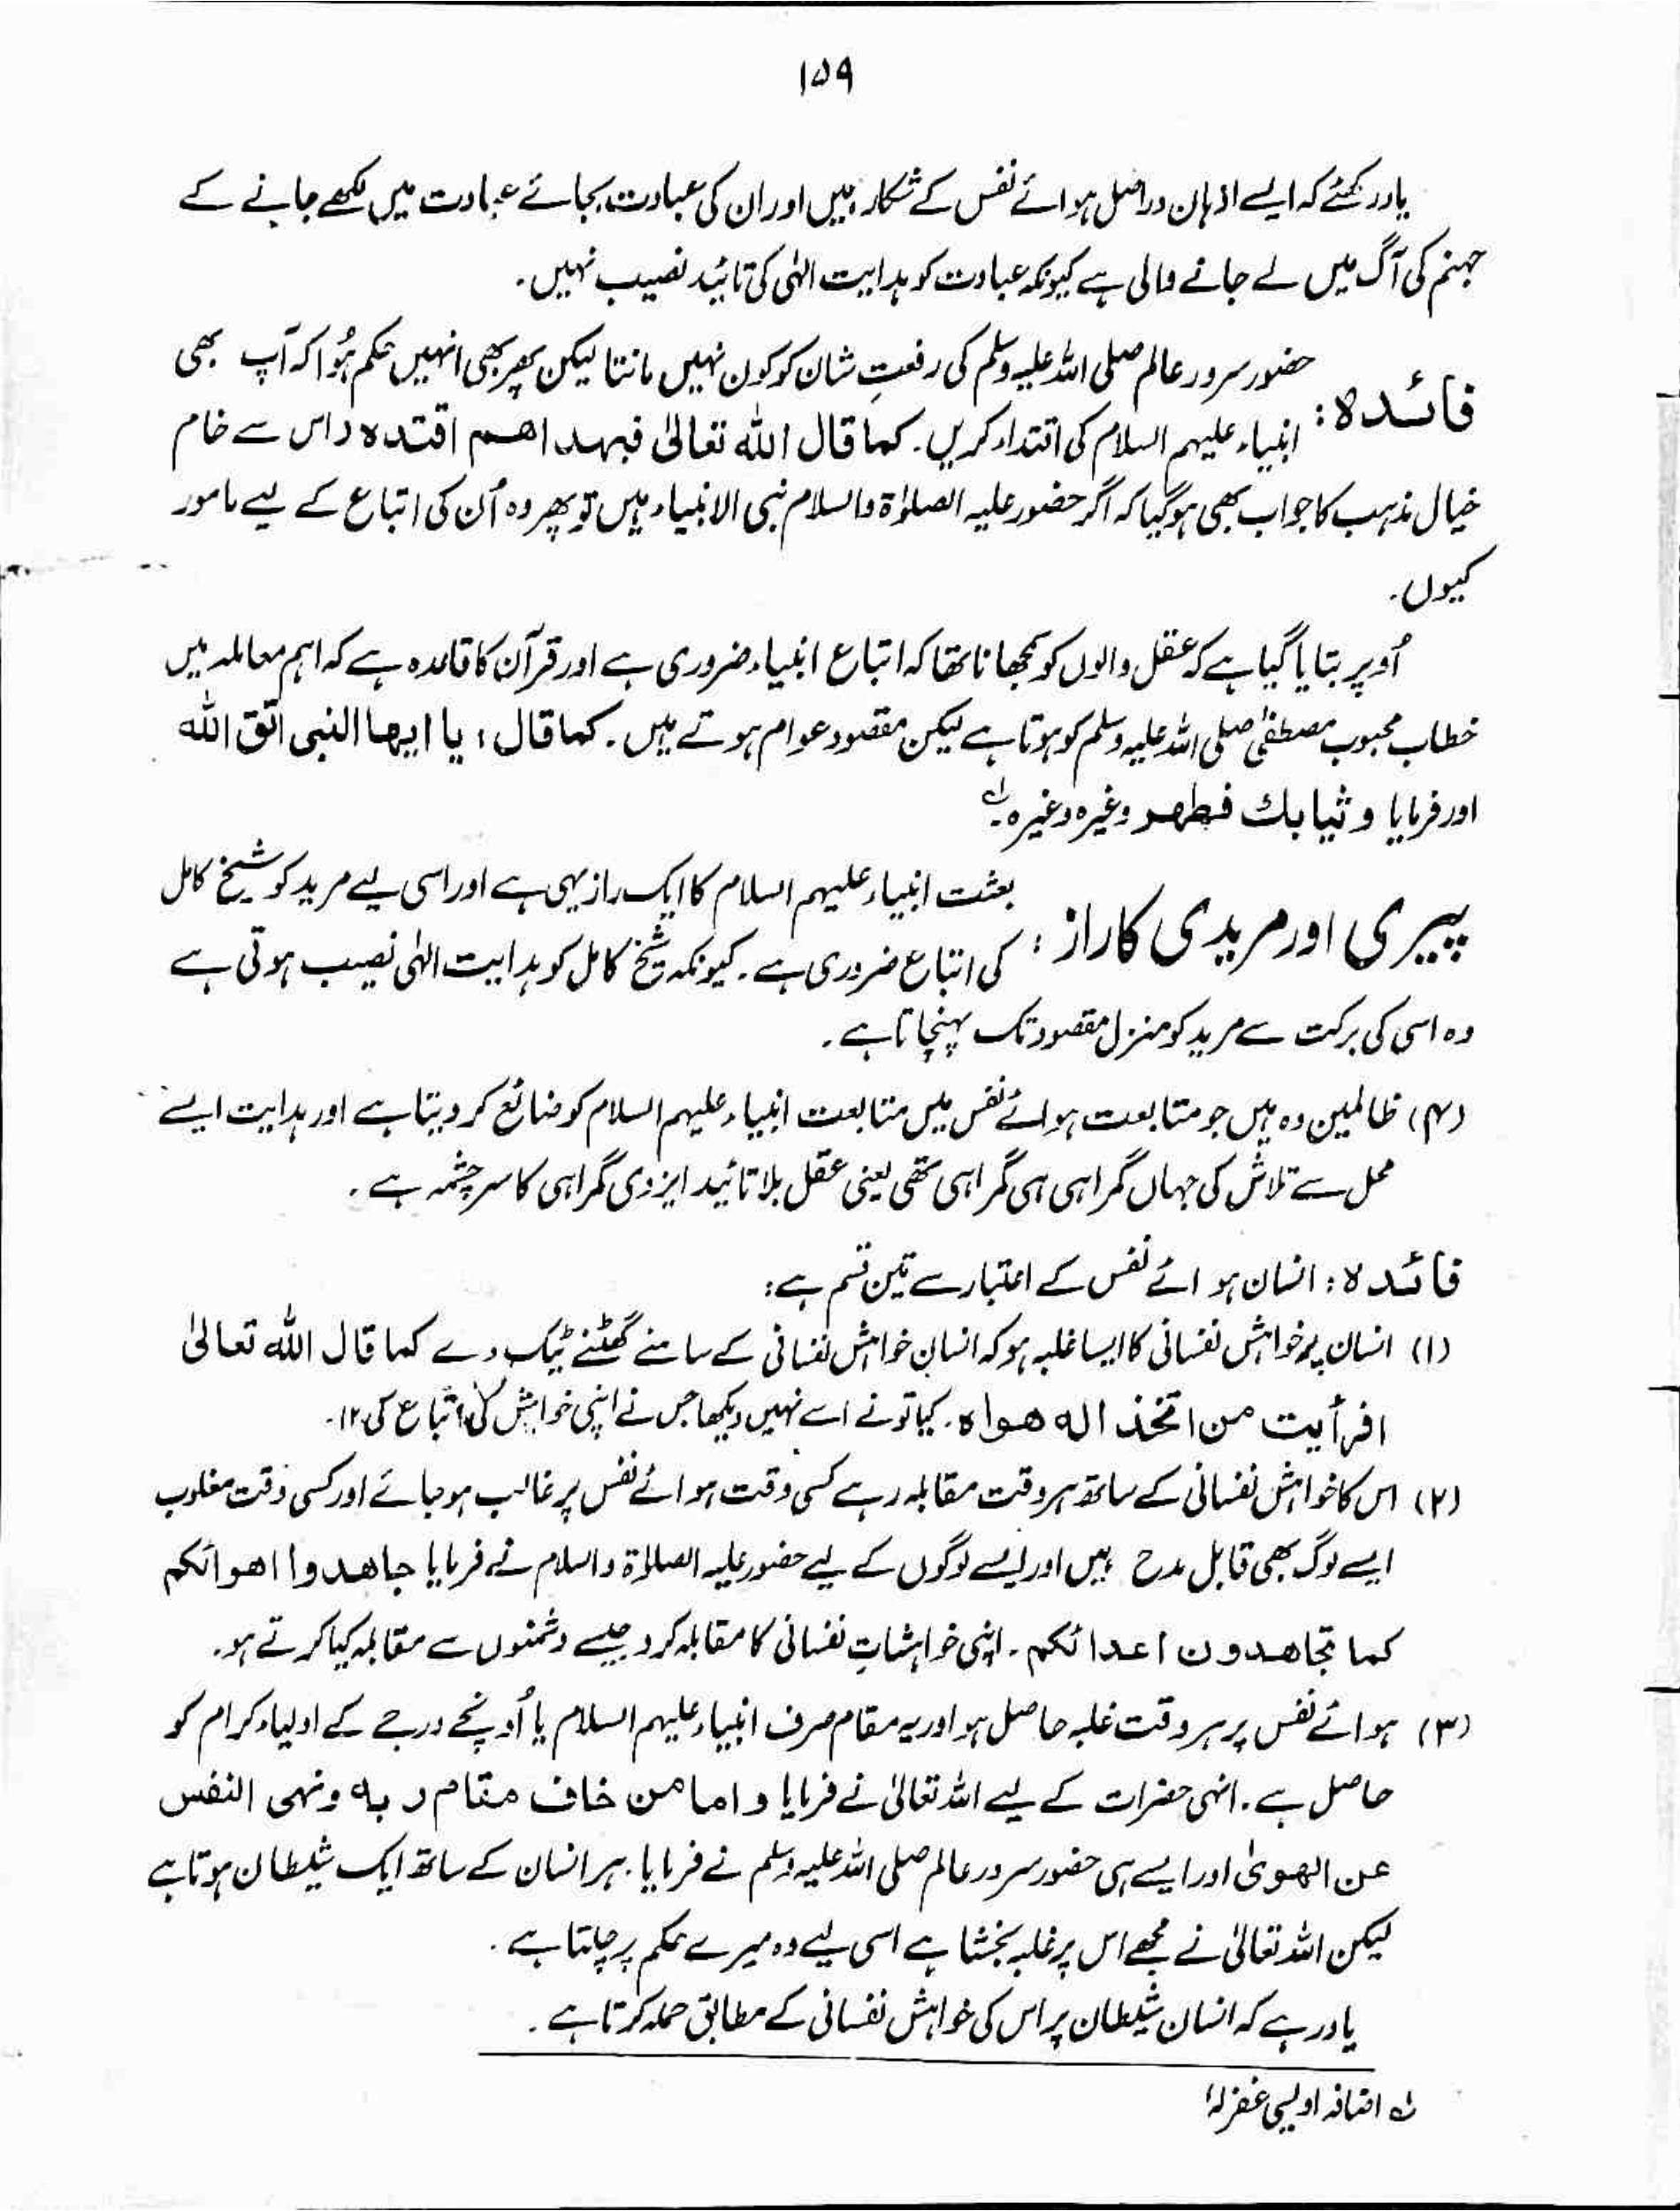 ۱۵۹
یاد رکھئے کہ ایسے اذہان دراصل ہوائے نفس کے شکار ہیں اور ان کی عبادت بجائے عبادت میں لکھے جانے کے
جہنم کی آگ میں لے جانے والی ہے کیونکہ عبادت کو ہدایت الٰہی کی تائید نصیب نہیں۔
فائدہ: حضور سرور عالم صلی اللہ علیہ وسلم کی رفعتِ شان کو کون نہیں مانتا لیکن پھر بھی انہیں حکم ہُوا کہ آپ بھی
انبیاء علیہم السلام کی اقتداء کریں۔ کما قال اللہ تعالیٰ فبھداھم اقتدہ واس سے خام
خیال مذہب کا جواب بھی ہوگیا کہ اگر حضور علیہ الصلوٰۃ والسلام نبی الانبیاء ہیں تو پھر وہ اُن کی اتباع کے لیے مامور
کیوں۔
اُوپر بتایا گیا ہے کہ عقل والوں کو سمجھانا تھا کہ اتباع انبیاء ضروری ہے اور قرآن کا قاعدہ ہے کہ اہم معاملہ میں
خطاب محبوب مصطفٰی صلی اللہ علیہ وسلم کو ہوتا ہے لیکن مقصود عوام ہوتے ہیں۔ کما قال، یا ایھا النبی اتق اللہ
اور فرمایا وثیابك فطھر وغیرہ وغیرہ۔ لہ
پیری اور مریدی کا راز: بعثت انبیاء علیہم السلام کا ایک راز یہی ہے اور اسی لیے مرید کو شیخ کامل
کی اتباع ضروری ہے۔ کیونکہ شیخ کامل کو ہدایت الٰہی نصیب ہوتی ہے
وہ اسی کی برکت سے مرید کو منزل مقصود تک پہنچاتا ہے۔
(۴) ظالمین وہ ہیں جو متابعت ہوائے نفس میں متابعت انبیاء علیہم السلام کو ضائع کر دیتا ہے اور ہدایت ایسے
محل سے تلاش کی جہاں گمراہی ہی گمراہی تھی یعنی عقل بلا تائید ایزدی گمراہی کا سرچشمہ ہے۔
فائدہ: انسان ہوائے نفس کے اعتبار سے تین قسم ہے:
(۱) انسان پر خواہش نفسانی کا ایسا غلبہ ہو کہ انسان خواہش نفسانی کے سامنے گھٹنے ٹیک دے کما قال اللہ تعالیٰ
افرأیت من اتخذ الہ ھواہ۔ کیا تو نے اسے نہیں دیکھا جس نے اپنی خواہش کی اتباع کی ۱۲۔
(۲) اس کا خواہش نفسانی کے ساتھ ہر وقت مقابلہ رہے کسی وقت ہوائے نفس پر غالب ہو جائے اور کسی وقت مغلوب
ایسے لوگ بھی قابل مدح ہیں اور ایسے لوگوں کے لیے حضور علیہ الصلوٰۃ والسلام نے فرمایا جاھدوا اھوائکم
کما تجاھدون اعدائکم۔ اپنی خواہشاتِ نفسانی کا مقابلہ کرو جیسے دشمنوں سے مقابلہ کیا کرتے ہو۔
(۳) ہوائے نفس پر ہر وقت غلبہ حاصل ہو اور یہ مقام صرف انبیاء علیہم السلام یا اُونچے درجے کے اولیاء کرام کو
حاصل ہے۔ انہی حضرات کے لیے اللہ تعالیٰ نے فرمایا واما من خاف مقام ربہ ونھی النفس
عن الھویٰ اور ایسے ہی حضور سرور عالم صلی اللہ علیہ وسلم نے فرمایا۔ ہر انسان کے ساتھ ایک شیطان ہوتا ہے
لیکن اللہ تعالیٰ نے مجھے اس پر غلبہ بخشا ہے اسی لیے وہ میرے حکم پر چلتا ہے۔
یاد رہے کہ انسان شیطان پر اس کی خواہش نفسانی کے مطابق حملہ کرتا ہے۔
لہ اضافہ اویسی غفرلہٗ